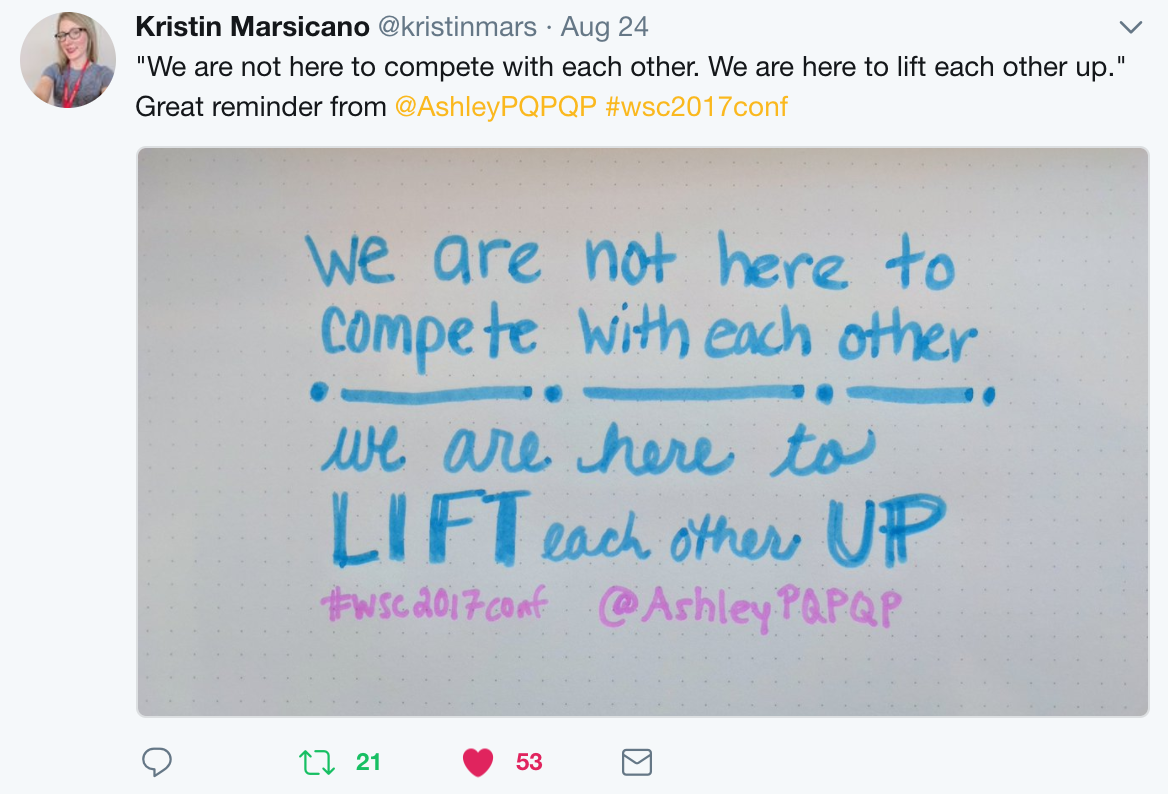 Kristin Marsicano @kristinmars · Aug 24
"We are not here to compete with each other. We are here to lift each other up."
Great reminder from @AshleyPQPQP #wsc2017conf
We are not here to
compete with each other
we are here to
LIFT each other UP
#wsc2017conf @AshleyPQPQP
21 53